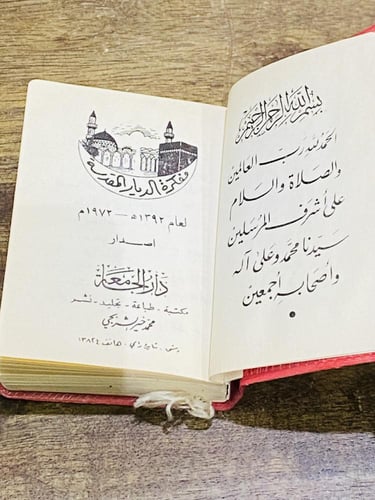 بسم الله الرحمن الرحيم
الحمد لله رب العالمين
والصلاة والسلام
على أشرف المرسلين
سيدنا محمد وعلى آله
وأصحابه أجمعين
مفكرة الديار المقدسة
لعام ١٣٩٢هـ - ١٩٧٢م
اصدار
دار الجامعة
مكتبة - طباعة - تجليد - نشر
محمد خير
هاتف ١٣٨٢٤